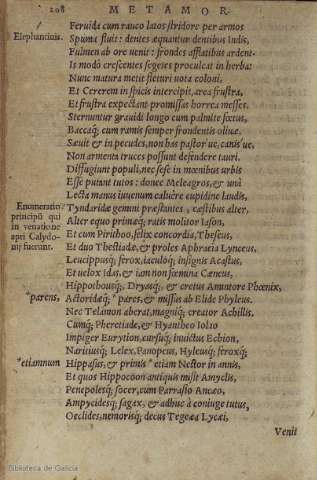 208 METAMOR.
Feruida cum rauco latos stridore per armos
Elephantinis. Spuma fluit: dentes æquantur dentibus Indis,
Fulmen ab ore venit: frondes afflatibus ardent.
Is modò crescentes segetes proculcat in herba:
Nunc matura metit fleturi uota coloni,
Et Cererem in spicis intercipit, area frustra,
Et frustra expectant promissas horrea messes.
Sternuntur grauidi longo cum palmite fœtus,
Baccaq; cum ramis semper frondentis oliuæ.
Sæuit & in pecudes, non has pastor ue, canis ue,
Non armenta truces possunt defendere tauri.
Diffugiunt populi, nec sese in mœnibus urbis
Esse putant tutos: donec Meleagros, & unà
Lecta manus iuuenum caluêre cupidine laudis,
Enumeratio Tyndaridæ gemini præstantes, cæstibus alter,
principū qui Alter equo primæq; ratis molitor Iason,
in venatione Et cum Pirithoo, felix concordia, Theseus,
apri Calydo- Et duo Thestiadæ, & proles Aphræia Lynceus,
nij fuerunt. Leucippusq; ferox, iaculoq; insignis Acastus
Et uelox Idas, & iam non fœmina Cæneus,
Hippothousq; Dryasq; & cretus Amintore Phœnix,
*parens, Actoridæq; *pares, & missus ab Elide Phyleus.
Nec Telamon aberat, magniq; creator Achillis.
Cumq; Pheretiade, & Hyantheo Iolao
Impiger Eurytion, cursuq; inuictus Echion,
Naritiusq; Lelex, Panopeus, Hyleusq; feroxq;
*etiamnum Hippasus, & primis *etiam Nector in annis,
Et quos Hippocoon antiquis misit Amyclis,
Penelopesq; socer, cum Parrasio Ancæo,
Ampycidesq; sagax, & adhuc à coniuge tutus,
Oeclides, nemorisq; decus Tegeæa Lycæi,
Venit
Biblioteca de Galicia